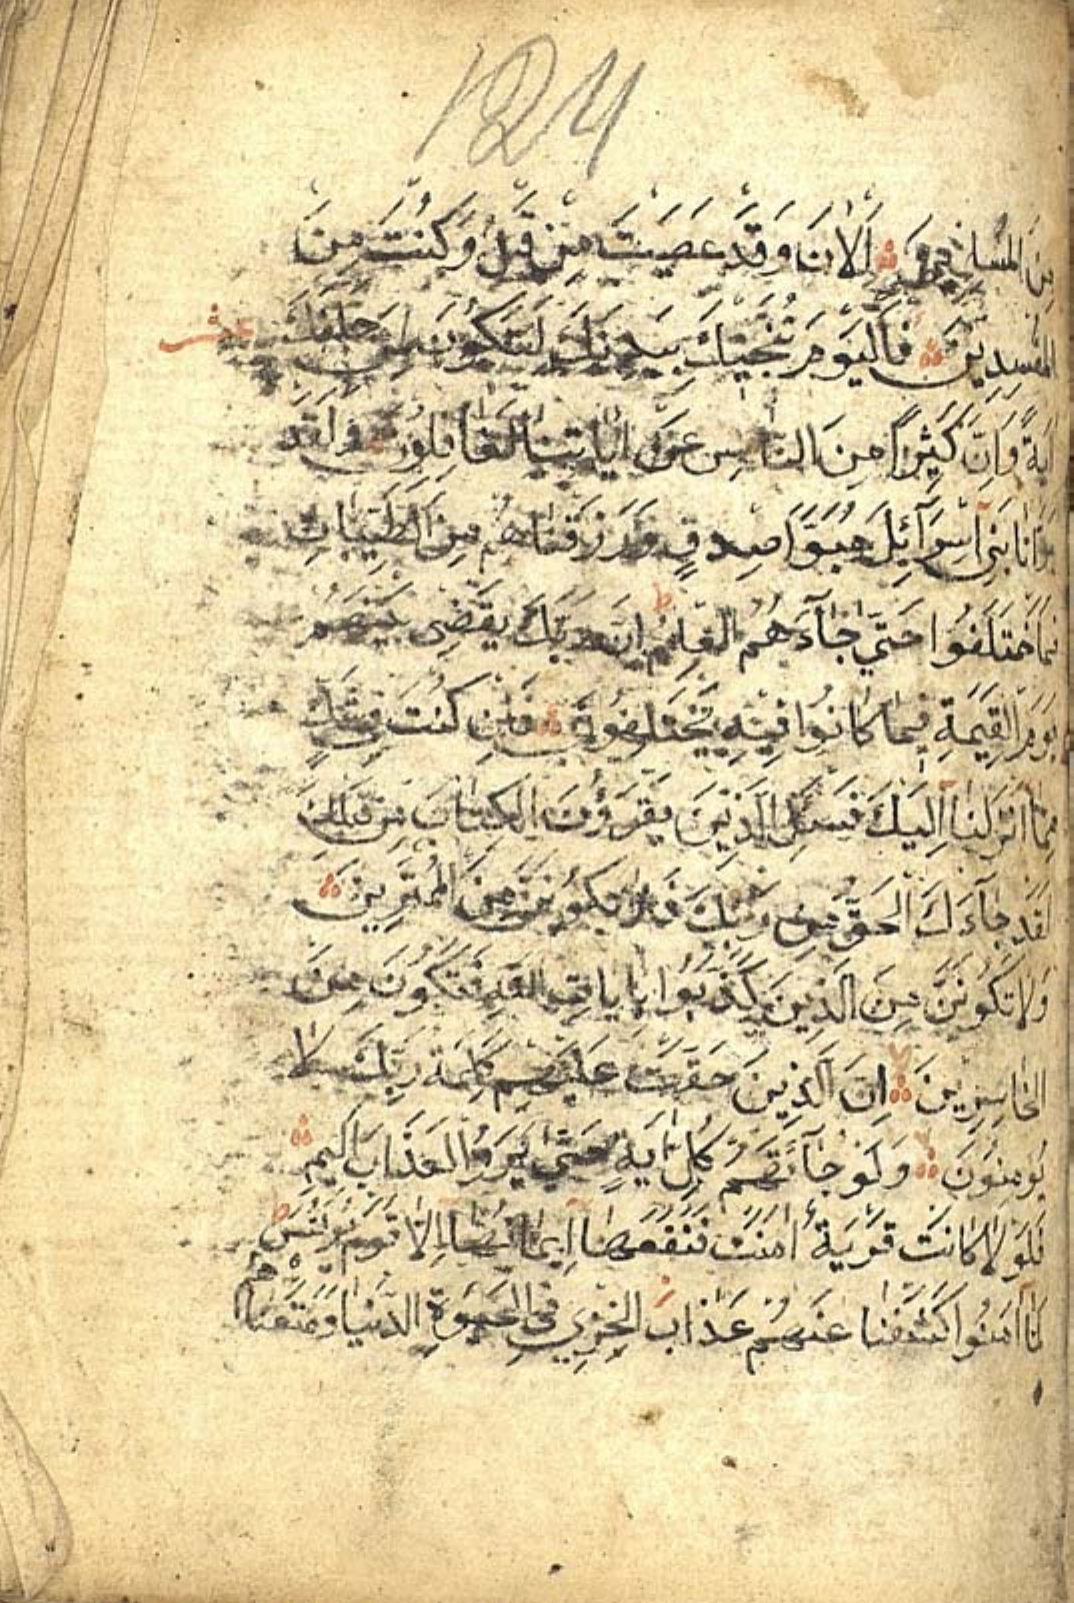 124
مِنَ المُسْلِمِينَ اٰلْاٰنَ وَقَدْ عَصَيْتَ مِنْ قَبْلُ وَكُنْتَ مِنَ
المُفْسِدِينَ فَالْيَوْمَ نُنَجِّيكَ بِبَدَنِكَ لِتَكُونَ لِمَنْ خَلْفَكَ
عشر
اٰيَةً وَاِنَّ كَثِيرًا مِنَ النَّاسِ عَنْ اٰيَاتِنَا لَغَافِلُونَ وَلَقَدْ
بَوَّاْنَا بَنِى اِسْرَآئِلَ مُبَوَّاَ صِدْقٍ وَرَزَقْنَاهُمْ مِنَ الطَّيِّبَاتِ
فَمَا اخْتَلَفُوا حَتّٰى جَآءَهُمُ الْعِلْمُ اِنَّ رَبَّكَ يَقْضِى بَيْنَهُمْ
يَوْمَ الْقِيٰمَةِ فِيمَا كَانُوا فِيهِ يَخْتَلِفُونَ فَاِنْ كُنْتَ فِى شَكٍّ
مِمَّا اَنْزَلْنَا اِلَيْكَ فَسْئَلِ الَّذِينَ يَقْرَؤُنَ الْكِتَابَ مِنْ قَبْلِكَ
لَقَدْ جَآءَكَ الْحَقُّ مِنْ رَبِّكَ فَلَا تَكُونَنَّ مِنَ الْمُمْتَرِينَ
وَلَا تَكُونَنَّ مِنَ الَّذِينَ كَذَّبُوا بِاٰيَاتِ اللّٰهِ فَتَكُونَ مِنَ
الْخَاسِرِينَ اِنَّ الَّذِينَ حَقَّتْ عَلَيْهِمْ كَلِمَةُ رَبِّكَ لَا
يُؤْمِنُونَ وَلَوْ جَآءَتْهُمْ كُلُّ اٰيَةٍ حَتّٰى يَرَوُا الْعَذَابَ الْاَلِيمَ
فَلَوْلَا كَانَتْ قَرْيَةٌ اٰمَنَتْ فَنَفَعَهَا اِيمَانُهَا اِلَّا قَوْمَ يُونُسَ
لَمَّا اٰمَنُوا كَشَفْنَا عَنْهُمْ عَذَابَ الْخِزْىِ فِى الْحَيٰوةِ الدُّنْيَا وَمَتَّعْنَاهُمْ